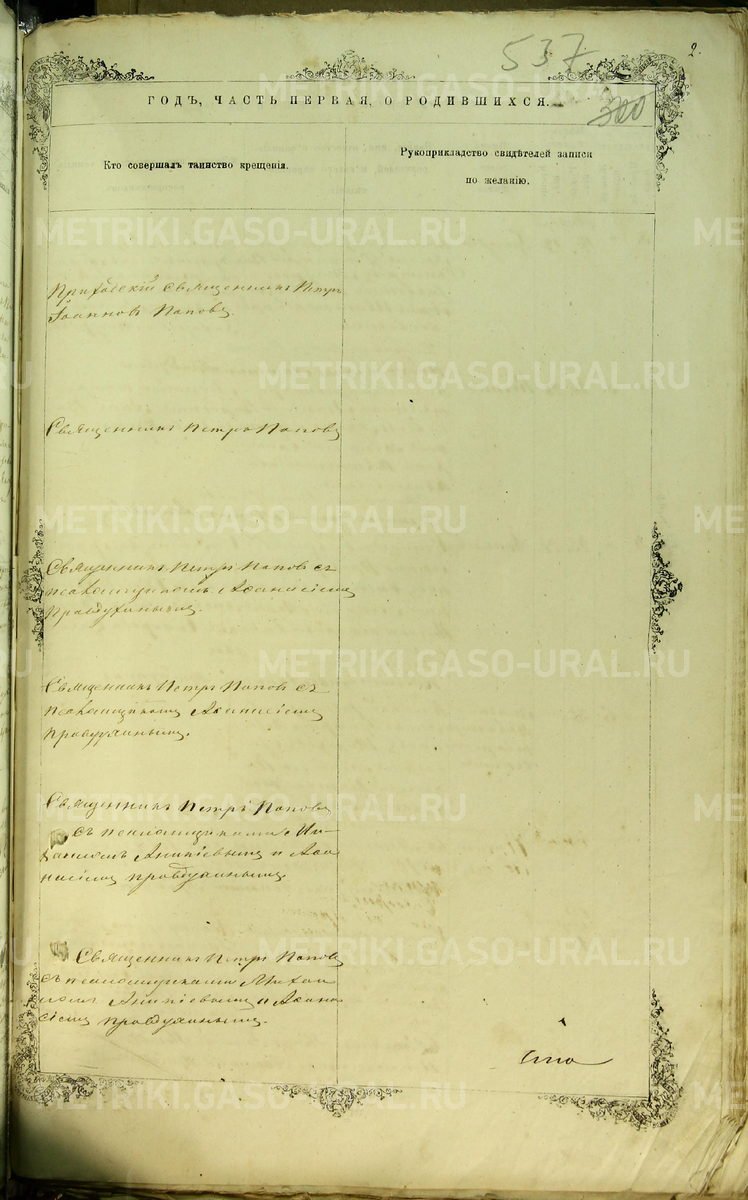 537
2.
ГОДЪ, ЧАСТЬ ПЕРВАЯ, О РОДИВШИХСЯ.
300
Кто совершалъ таинство крещенія.
Рукоприкладство свидѣтелей записи
по желанію.
Приходскій Священникъ Петръ
Іоанновъ Поповъ.
Священникъ Петръ Поповъ
Священникъ Петръ Поповъ съ
псаломщикомъ Аѳанасіемъ
Правдухинымъ.
Священникъ Петръ Поповъ съ
псаломщикомъ Аѳанасіемъ
Правдухинымъ.
Священникъ Петръ Поповъ
съ псаломщиками Ми-
хаиломъ Аникіевымъ и Аѳа
насіемъ Правдухинымъ.
Священникъ Петръ Поповъ
съ псаломщиками Михаи
ломъ Аникіевымъ и Аѳана
сіемъ Правдухинымъ.
METRIKI.GASO-URAL.RU